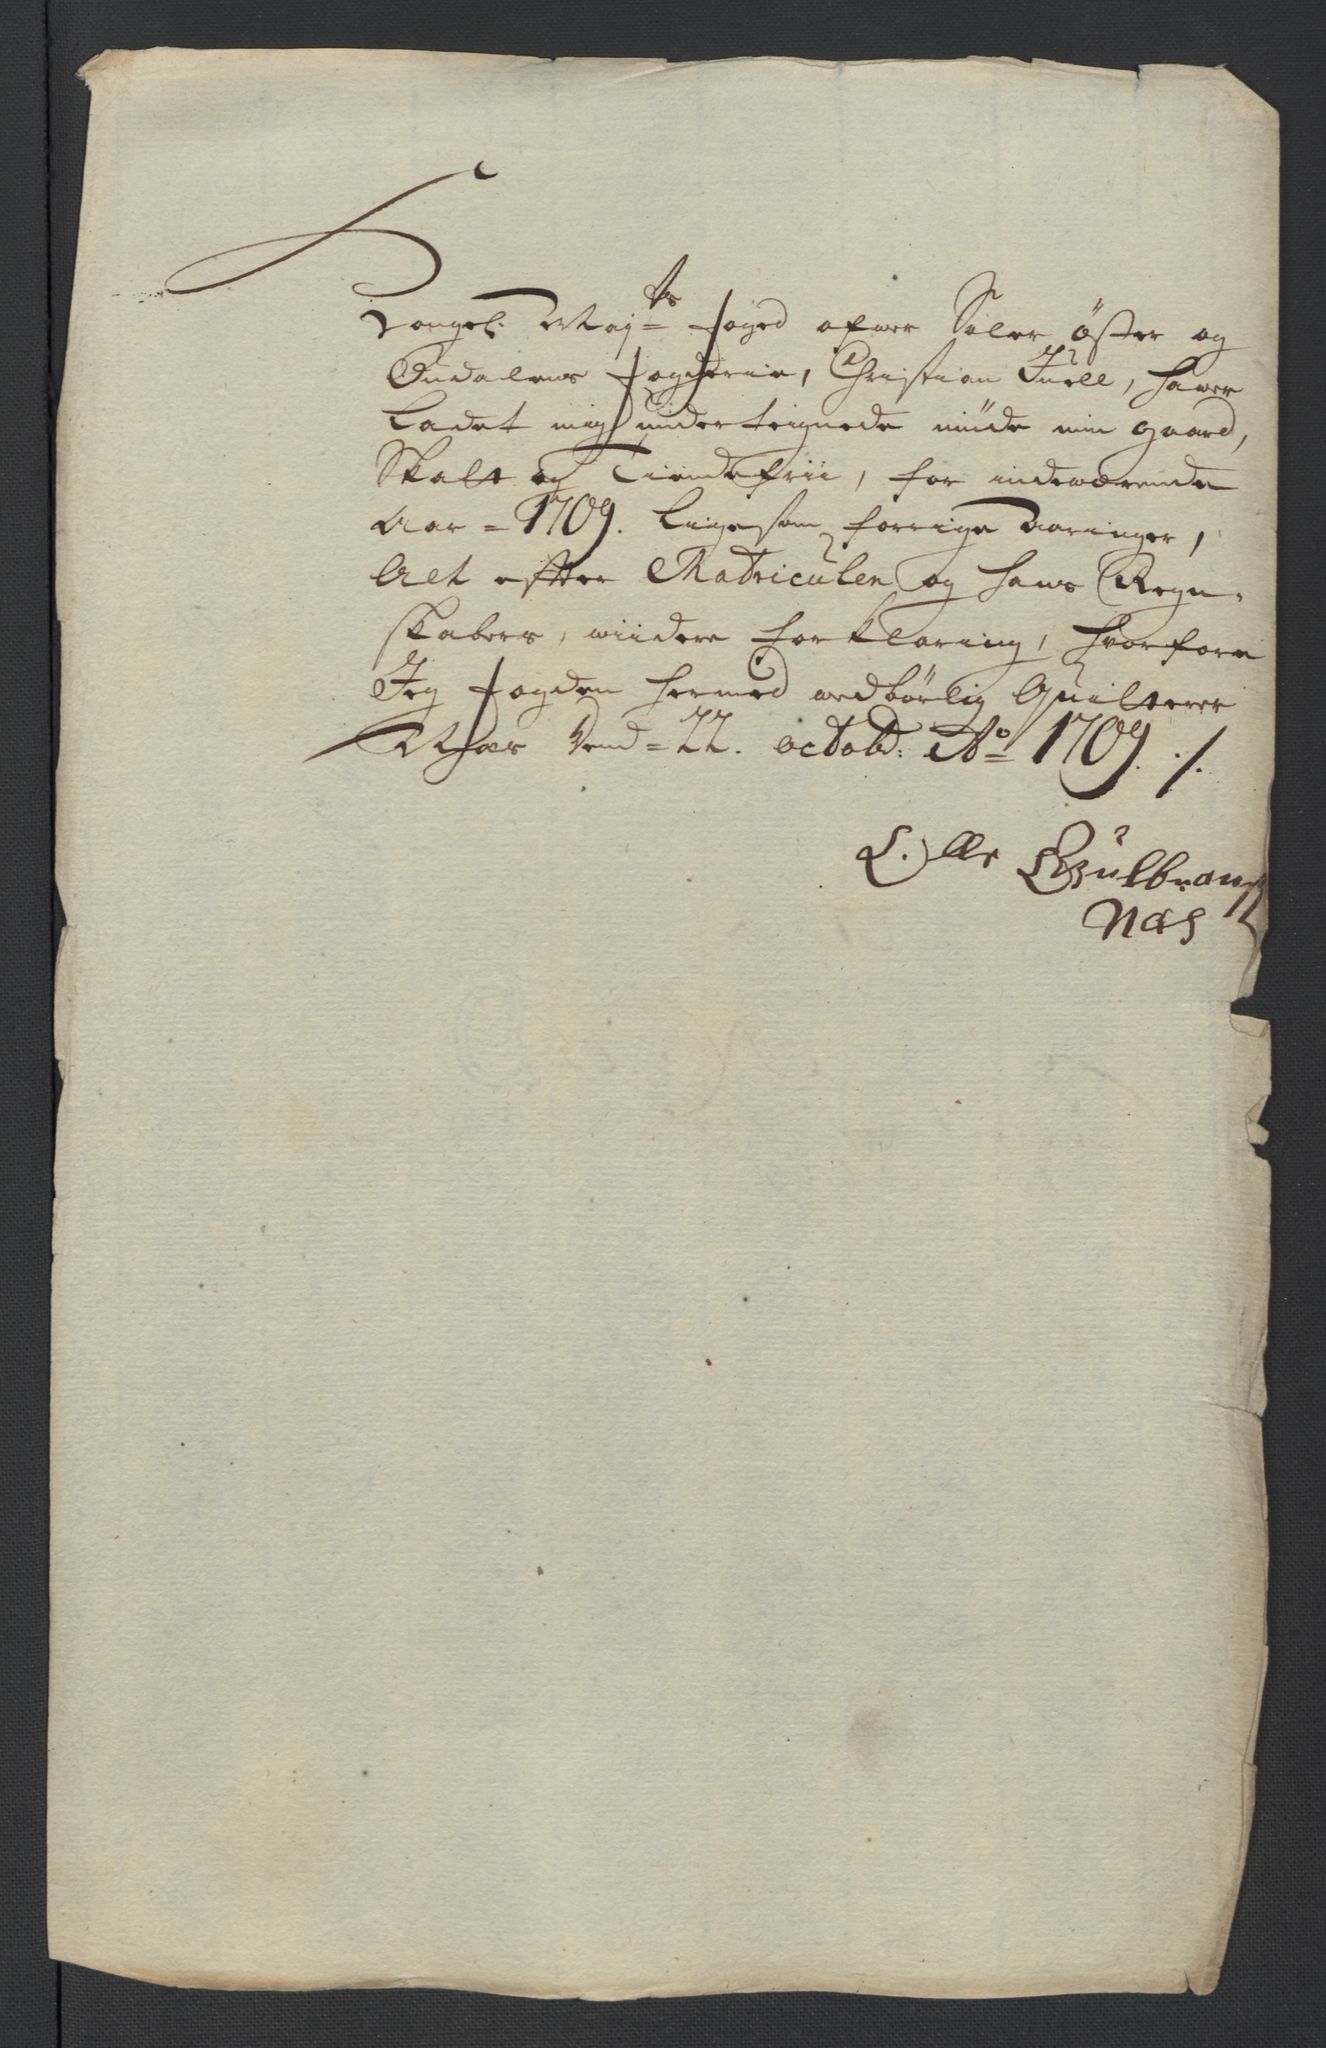 Kongel. Maj=ts foged ofwer Soler öster og
Oudalens fogderie, Christian Juell, hawer
Ladet mig underteignede nüde min gaard,
Skatt og Tiendefrii, for indewærende
Aar = 1709. Ligesom forrige Aaringer,
Alt efter Matriculen og hans Regn-
skabers, wiidere forklaring, hvorfore
Jeg fogden hermed wedbörlig Quitterer
Næs dend = 22. octobr: Ao 1709 ./.
Gulbrans
Næs